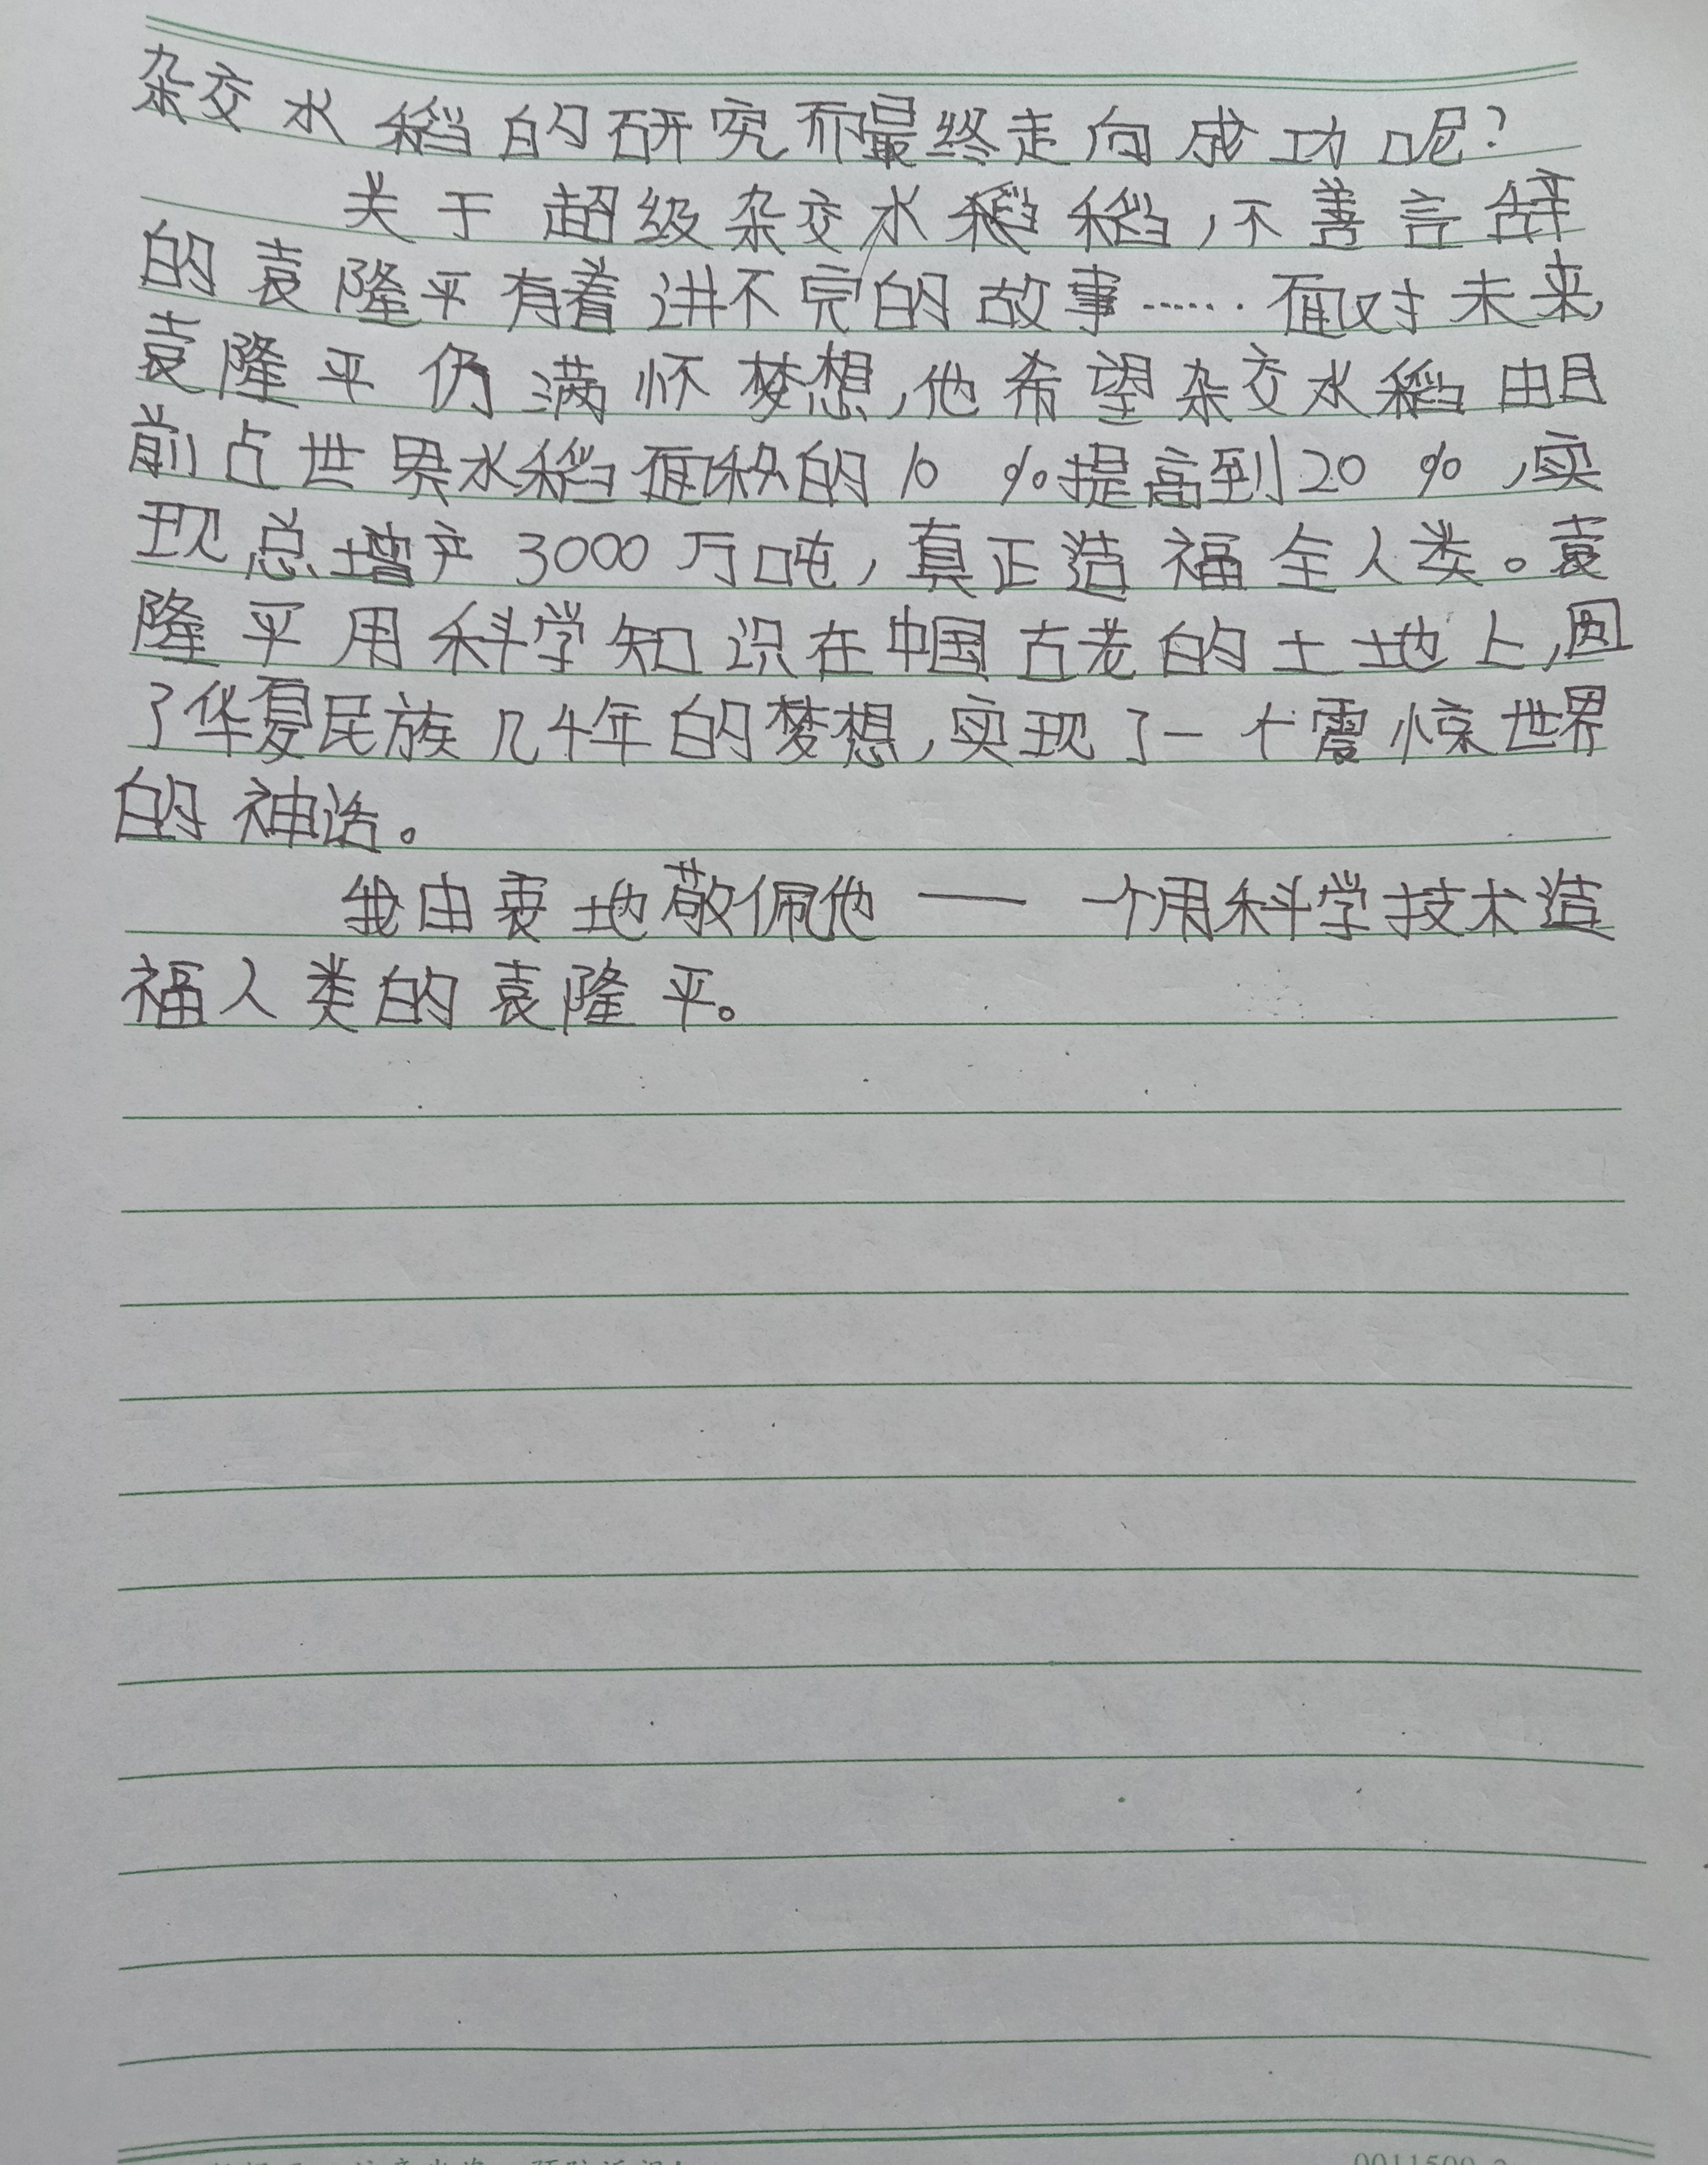 杂交水稻的研究而最终走向成功呢?
关于超级杂交水稻,不善言辞
的袁隆平有着讲不完的故事……面对未来,
袁隆平仍满怀梦想,他希望杂交水稻由目
前占世界水稻面积的10%提高到20%,实
现总增产3000万吨,真正造福全人类。袁
隆平用科学知识在中国古老的土地上,圆
了华夏民族几千年的梦想,实现了一个震惊世界
的神话。
我由衷地敬佩他——一个用科学技术造
福人类的袁隆平。